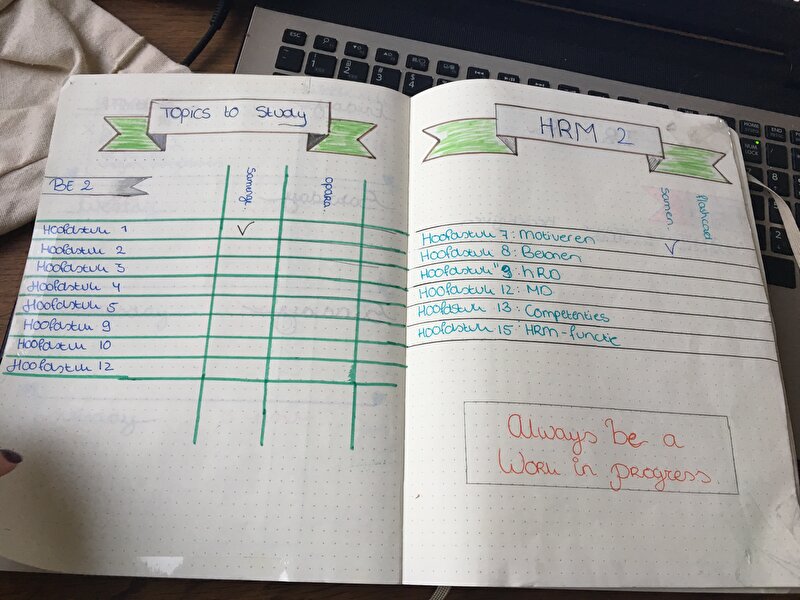 Topics to Study
BE 2
Samenv.
Hoofdstuk 1 ✓
Hoofdstuk 2
Hoofdstuk 3
Hoofdstuk 4
Hoofdstuk 5
Hoofdstuk 9
Hoofdstuk 10
Hoofdstuk 12
HRM 2
Samen.
flashcard
Hoofdstuk 7: Motiveren ✓
Hoofdstuk 8: Belonen
Hoofdstuk "9: HRD
Hoofdstuk 12: MD
Hoofdstuk 13: Competenties
Hoofdstuk 15: HRM-functie
Always be a
Work in progress.